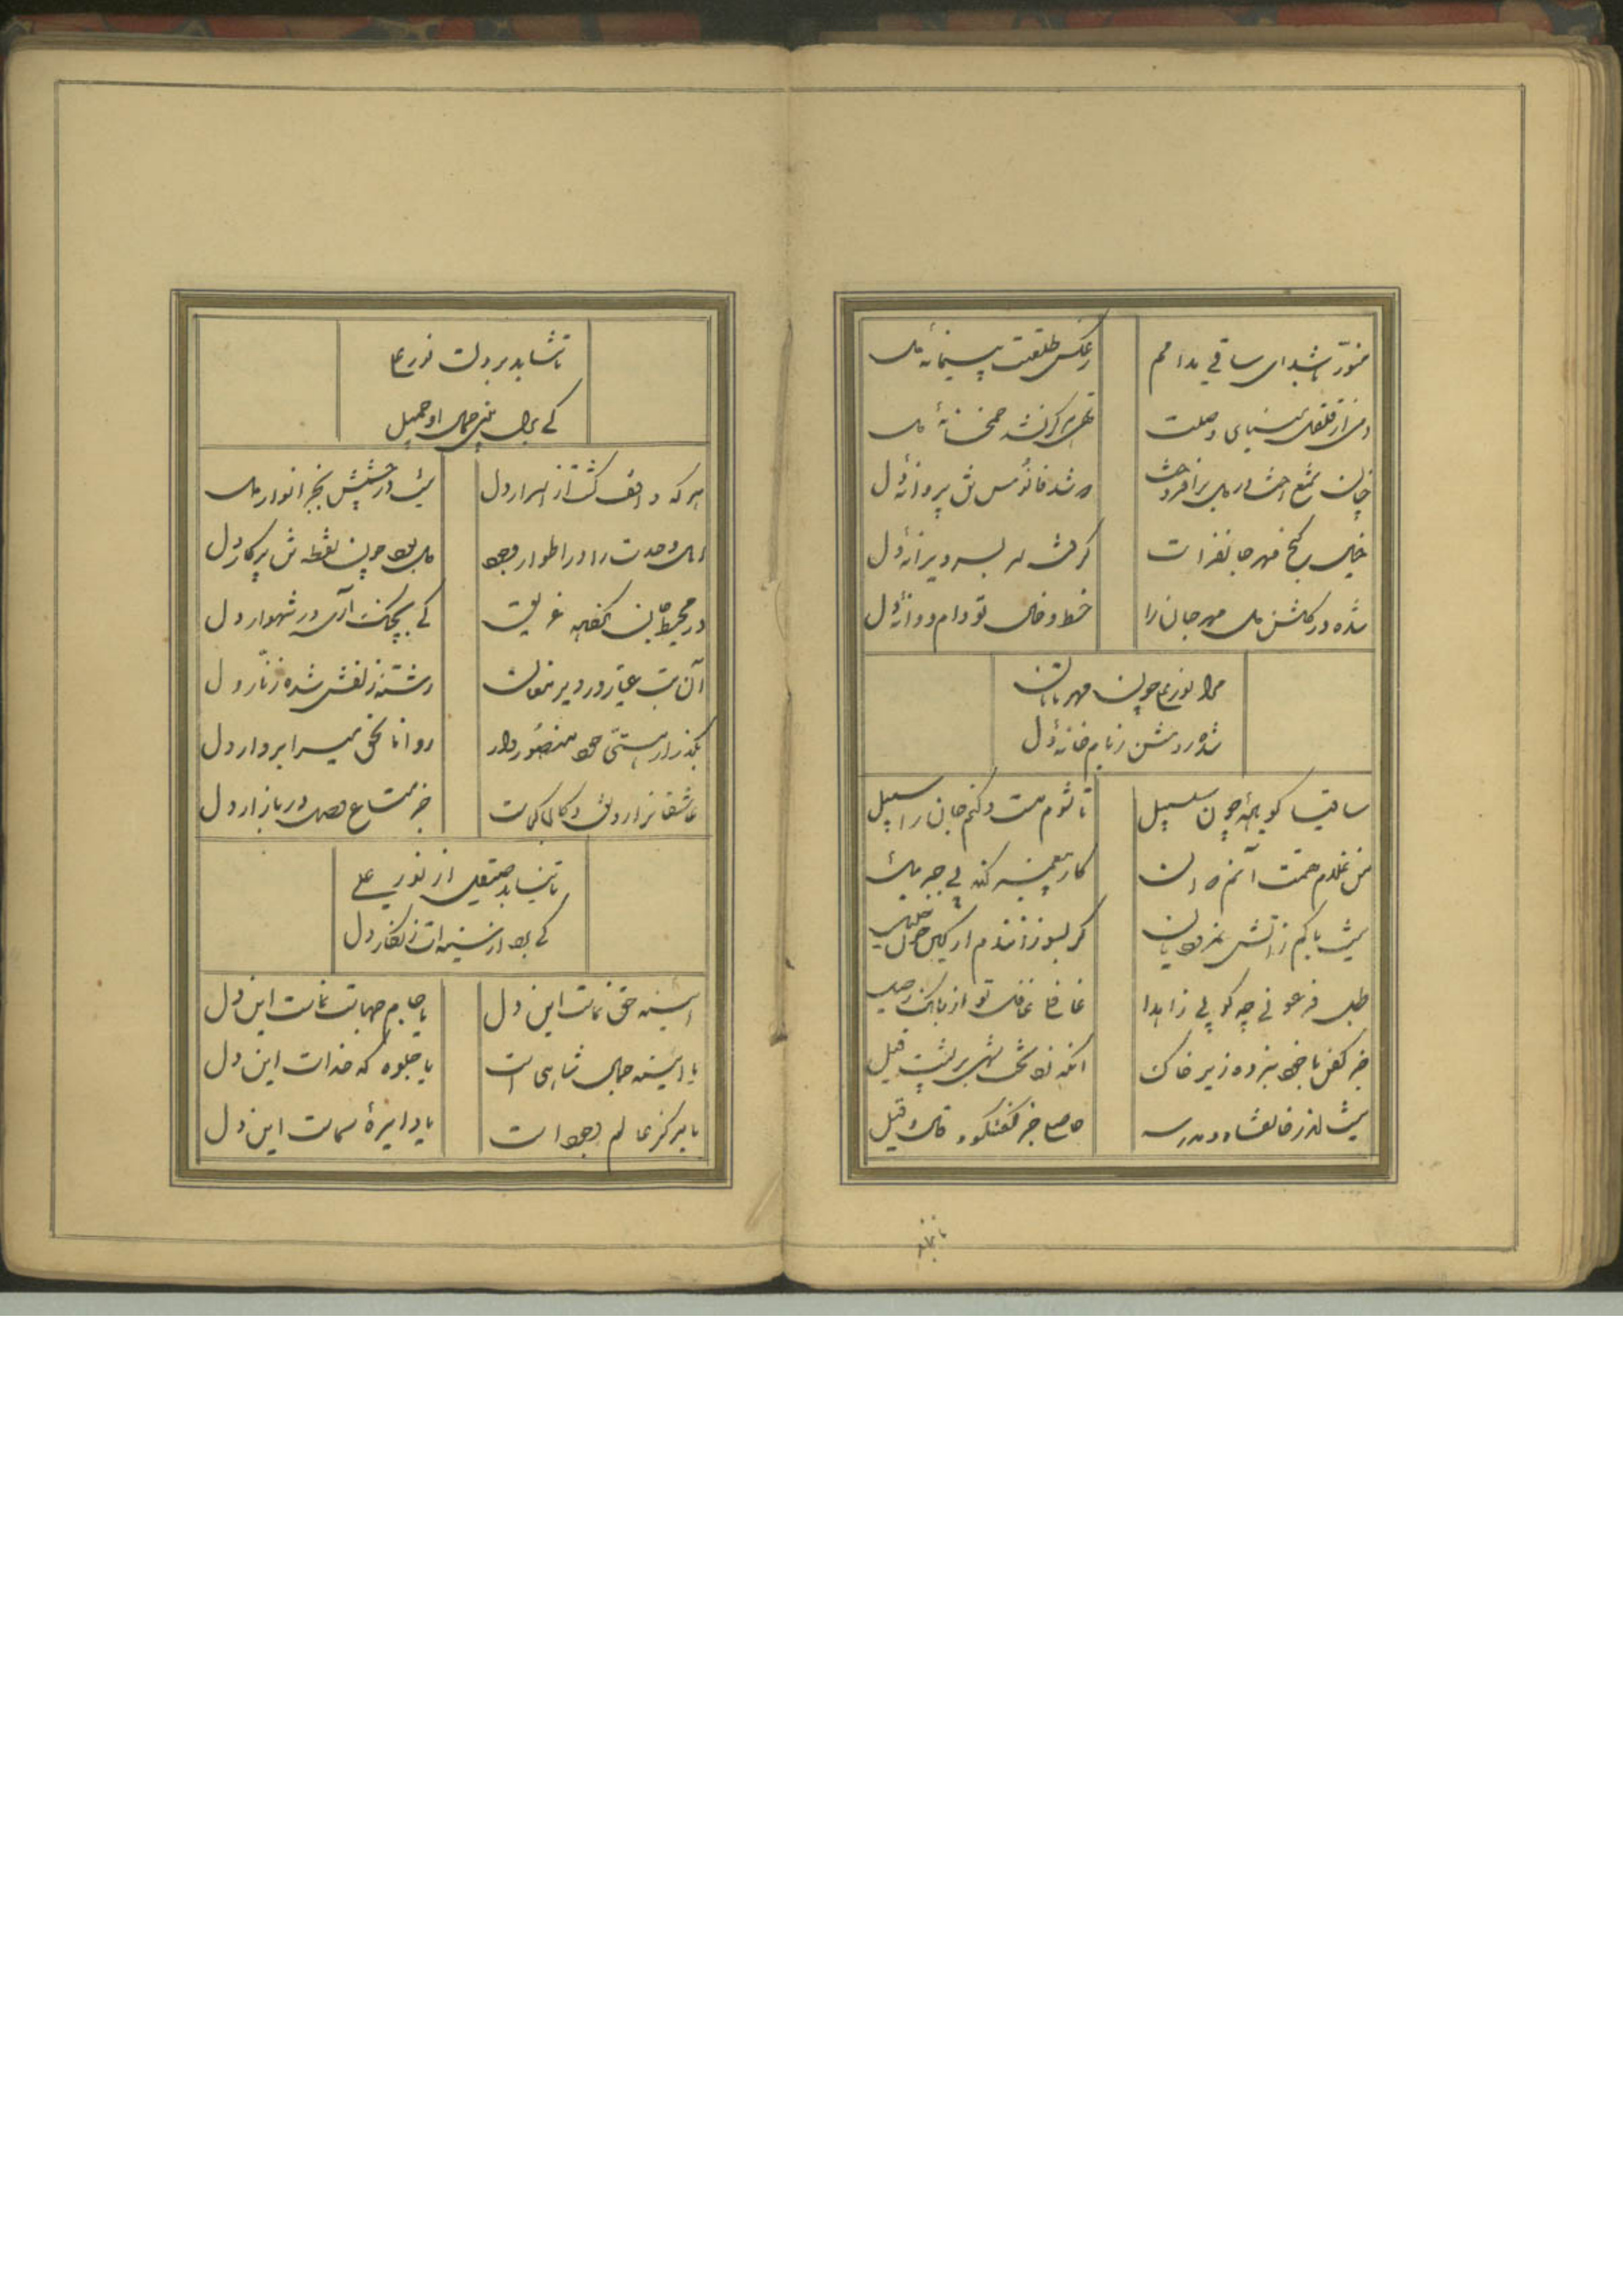 منور باشد ای ساقی مدامم
ز عکس طلعتت پیمانهٔ دل
دمی از قلقل مینای وصلت
تهی هرگز نشد خمخانهٔ دل
چنان شمع رخت در دل برافروخت
که شد فانوس تن پروانهٔ دل
خیالت گنج مهر جانفزات
شده در گلشن دل مهر جان را
خط و خال تو دام و دانهٔ دل
مرا نور علی چون مهر تابان
شده روشن ز بام خانهٔ دل
ساقیا کو بادهٔ چون سلسبیل
تا شوم مست و کنم جان را سبیل
من غلام همت آنم که او
کار پیغمبر کند بی جبرئیل
نیست باکم ز آتش نمرودیان
گر بسوزانندم ار یکسر خلیل
طبل فرعونی چه کوبی زاهدا
غافلی غافل تو از بانگ رحیل
جز کفن با خود نبرده زیر خاک
آنکه زد تخت شهی بر پشت فیل
نیست اندر خانقاه و مدرسه
حاصلی جز گفتگو و قال و قیل
تا نتابد
تا نتابد بر دلت نور علی
کی توان بینی جمال او جمیل
هر که واقف گشت از اسرار دل
نیست در چشمش بجز انوار دل
اهل وحدت را در اطوار وجود
دل بود چون نقطه تن پرگار دل
در محیط جان نگشته غریق
کی بچنگ آری در شهوار دل
آن بت عیار در دیر مغان
رشتهٔ زلفش شده زنار دل
بگذر از هستی خود منصور وار
رو انا الحق میسرا بر دار دل
عاشقانرا رونق دکان کجاست
جز متاع وصل در بازار دل
تا نیابد صیقلی از نور علی
کی رود از سینه‌ات زنگار دل
آیینه حق نماست این دل
یا جام جهان نماست این دل
یا آیینه جمال شاهی است
یا جلوه گه خداست این دل
یا مرکز عالم وجود است
یا دایرهٔ سماست این دل